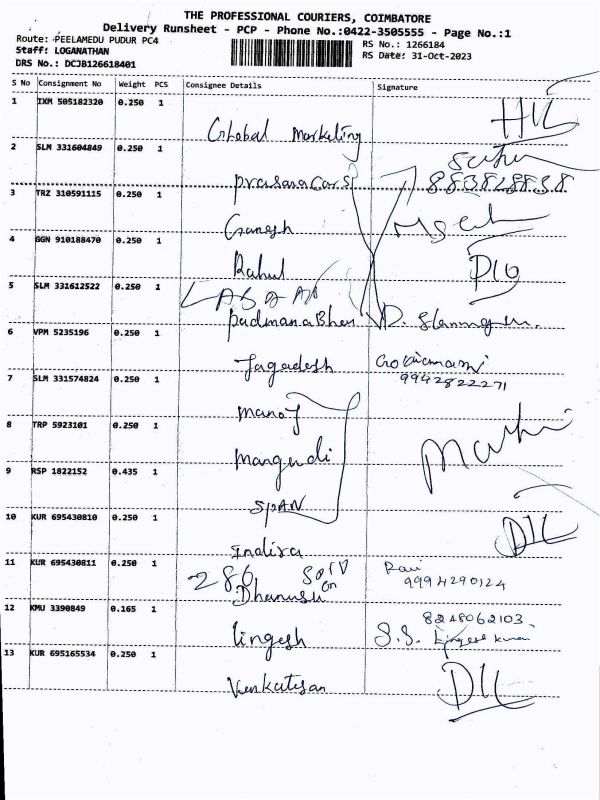 THE PROFESSIONAL COURIERS, COIMBATORE
Delivery Runsheet - PCP - Phone No.:0422-3505555 - Page No.:1
Route: PEELAMEDU PUDUR PC4
Staff: LOGANATHAN
DRS No.: DCJB126618401
RS No.: 1266184
RS Date: 31-Oct-2023
S No Consignment No Weight PCS Consignee Details Signature
1 IXM 505182320 0.250 1
Global Marketing
2 SLM 331604849 0.250 1
PrasanaCars 883828838
3 TRZ 310591115 0.250 1
Ganesh
4 GGN 910188470 0.250 1
Rahul
5 SLM 331612522 0.250 1
PadmanaBhan
6 VPM 5235196 0.250 1
Jagadesh
9942822271
7 SLM 331574824 0.250 1
Manoj
8 TRP 5923101 0.250 1
Margudi
9 RSP 1822152 0.435 1
SPAN
10 KUR 695430810 0.250 1
Indira
11 KUR 695430811 0.250 1 Ravi
286 9994290124
Dhanush
12 KMU 3390849 0.165 1 8248062103
lingesh S.S.
13 KUR 695165534 0.250 1
Venkatesan